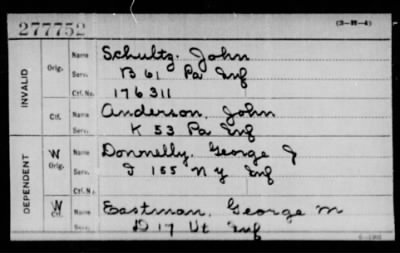 277752
(3-H-4)
INVALID
Orig. Name Schultz, John
Serv. B 61 Pa Inf
Ctf. No. 176311
Ctf. Name Anderson, John
Serv. K 53 Pa Inf
DEPENDENT
W Orig. Name Donnelly, George J
Serv. I 155 N Y Inf
Ctf. No.
W Ctf. Name Eastman, George M
Serv. D 17 Vt Inf